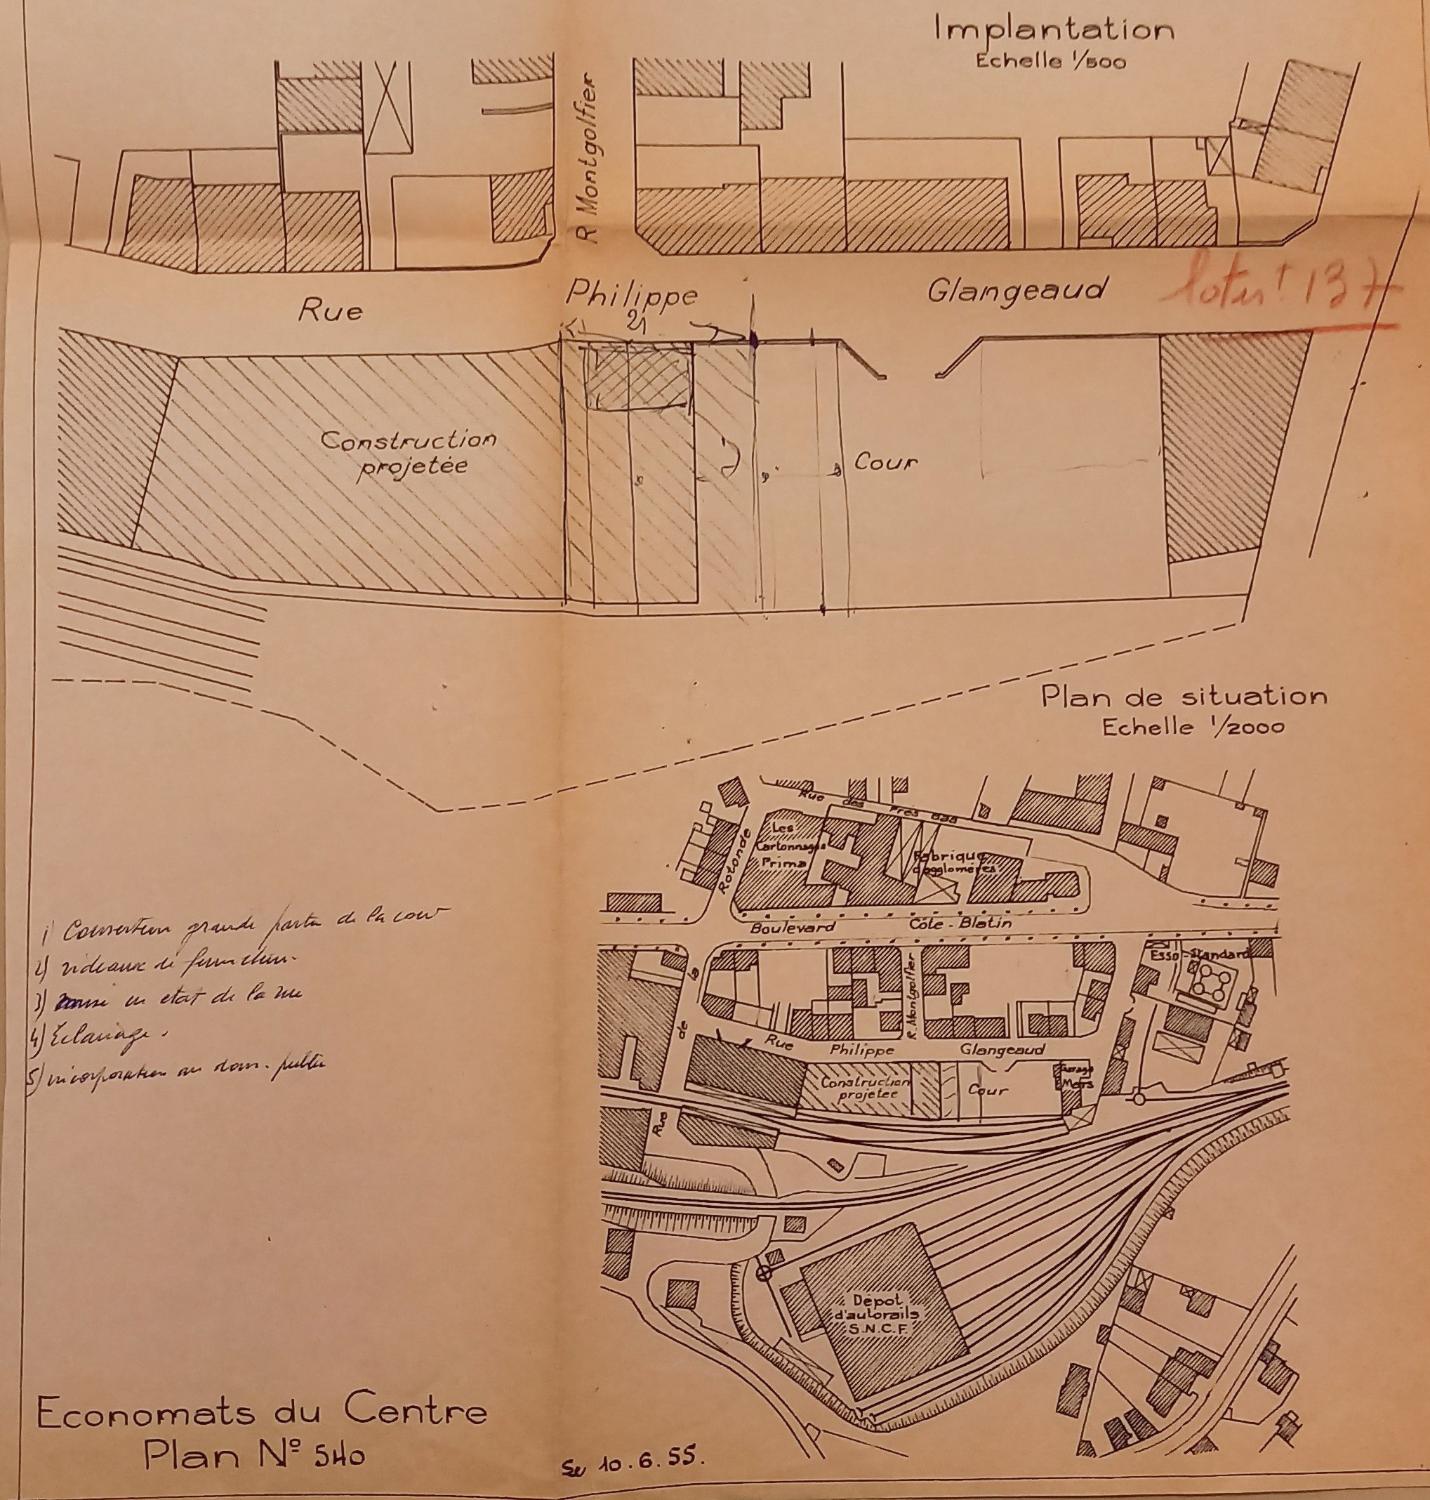 Implantation
Echelle 1/500
R Montgolfier
Rue
Philippe
Glangeaud
137
21
Construction
projetée
Cour
Plan de situation
Echelle 1/2000
Rue des Prés Bas
Rotonde
Les
Cartonnages
Prima
Fabrique
d'agglomérés
Boulevard Côte-Blatin
Esso-Standard
la
R. Montgolfier
de
Rue Philippe Glangeaud
Construction
projetée
Cour
Garage
Rue
1) Couverture grande partie de la cour
2) rideaux de fermeture.
3) mise en état de la rue
4) Eclairage.
5) incorporation au dom. public
Dépot
d'autorails
S.N.C.F.
Economats du Centre
Plan Nº 540
10.6.55.